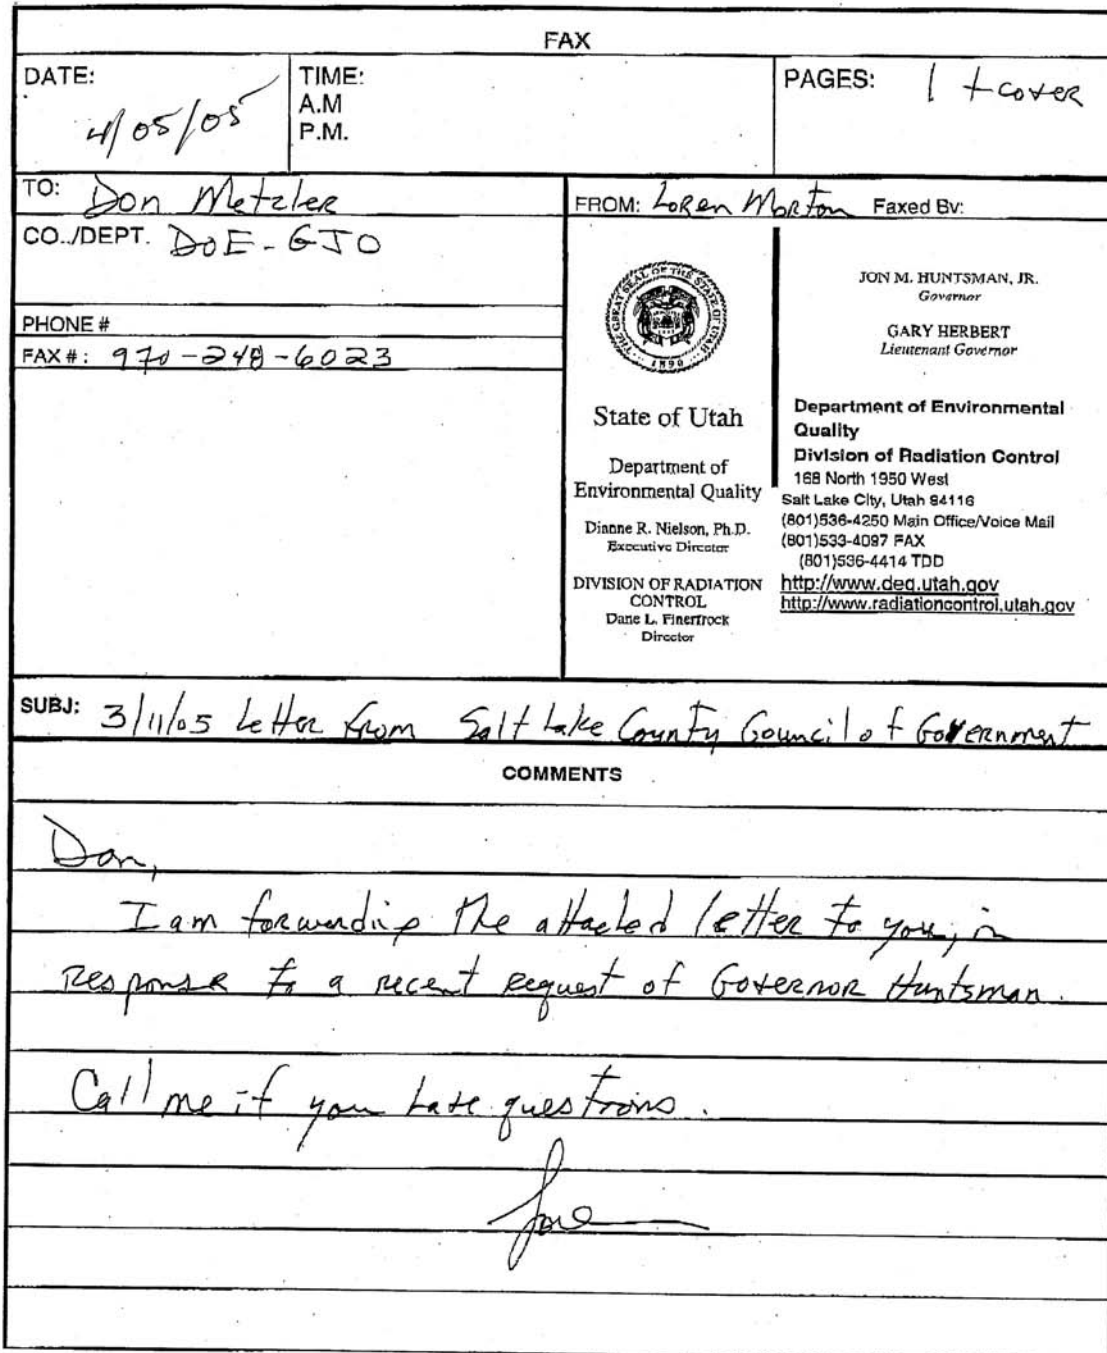 FAX
DATE: 4/05/05
TIME:
A.M
P.M.
PAGES: 1 + cover
TO: Don Metzler
CO../DEPT. DOE-GJO
PHONE #
FAX #: 970-248-6023
FROM: Loren Morton Faxed By:
THE GREAT SEAL OF THE STATE OF UTAH
1896
State of Utah
Department of
Environmental Quality
Dianne R. Nielson, Ph.D.
Executive Director
DIVISION OF RADIATION
CONTROL
Dane L. Finerfrock
Director
JON M. HUNTSMAN, JR.
Governor
GARY HERBERT
Lieutenant Governor
Department of Environmental
Quality
Division of Radiation Control
168 North 1950 West
Salt Lake City, Utah 84116
(801)536-4250 Main Office/Voice Mail
(801)533-4097 FAX
(801)536-4414 TDD
http://www.deq.utah.gov
http://www.radiationcontrol.utah.gov
SUBJ: 3/11/05 Letter from Salt Lake County Council of Government
COMMENTS
Don,
I am forwarding the attached letter to you, in
response to a recent request of Governor Huntsman.
Call me if you have questions.